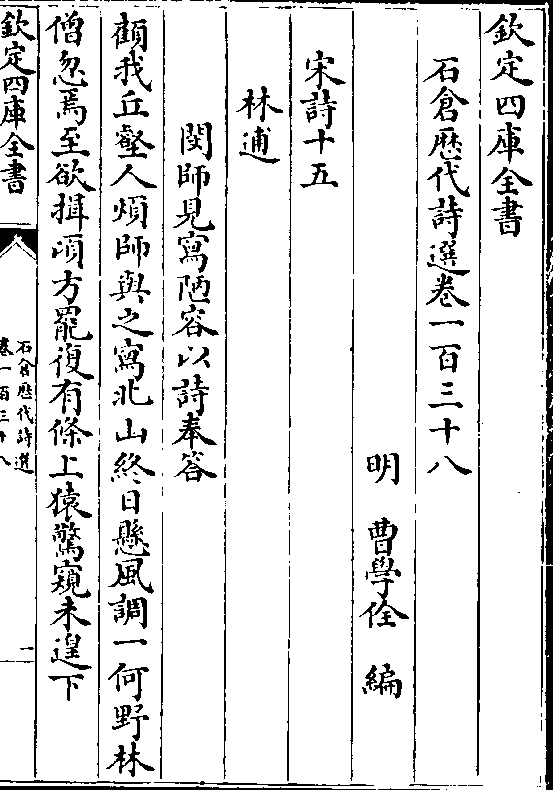 欽定四庫全書
石倉歷代詩選卷一百三十八
明 曹學佺 編
宋詩十五
林逋
閔師見寫陋容以詩奉答
顧我丘壑人煩師與之寫北山終日懸風調一何野林
僧忽焉至欲揖頃方罷復有條上猿驚窺未遑下
欽定四庫全書
石倉歷代詩選
卷一百三十八
一